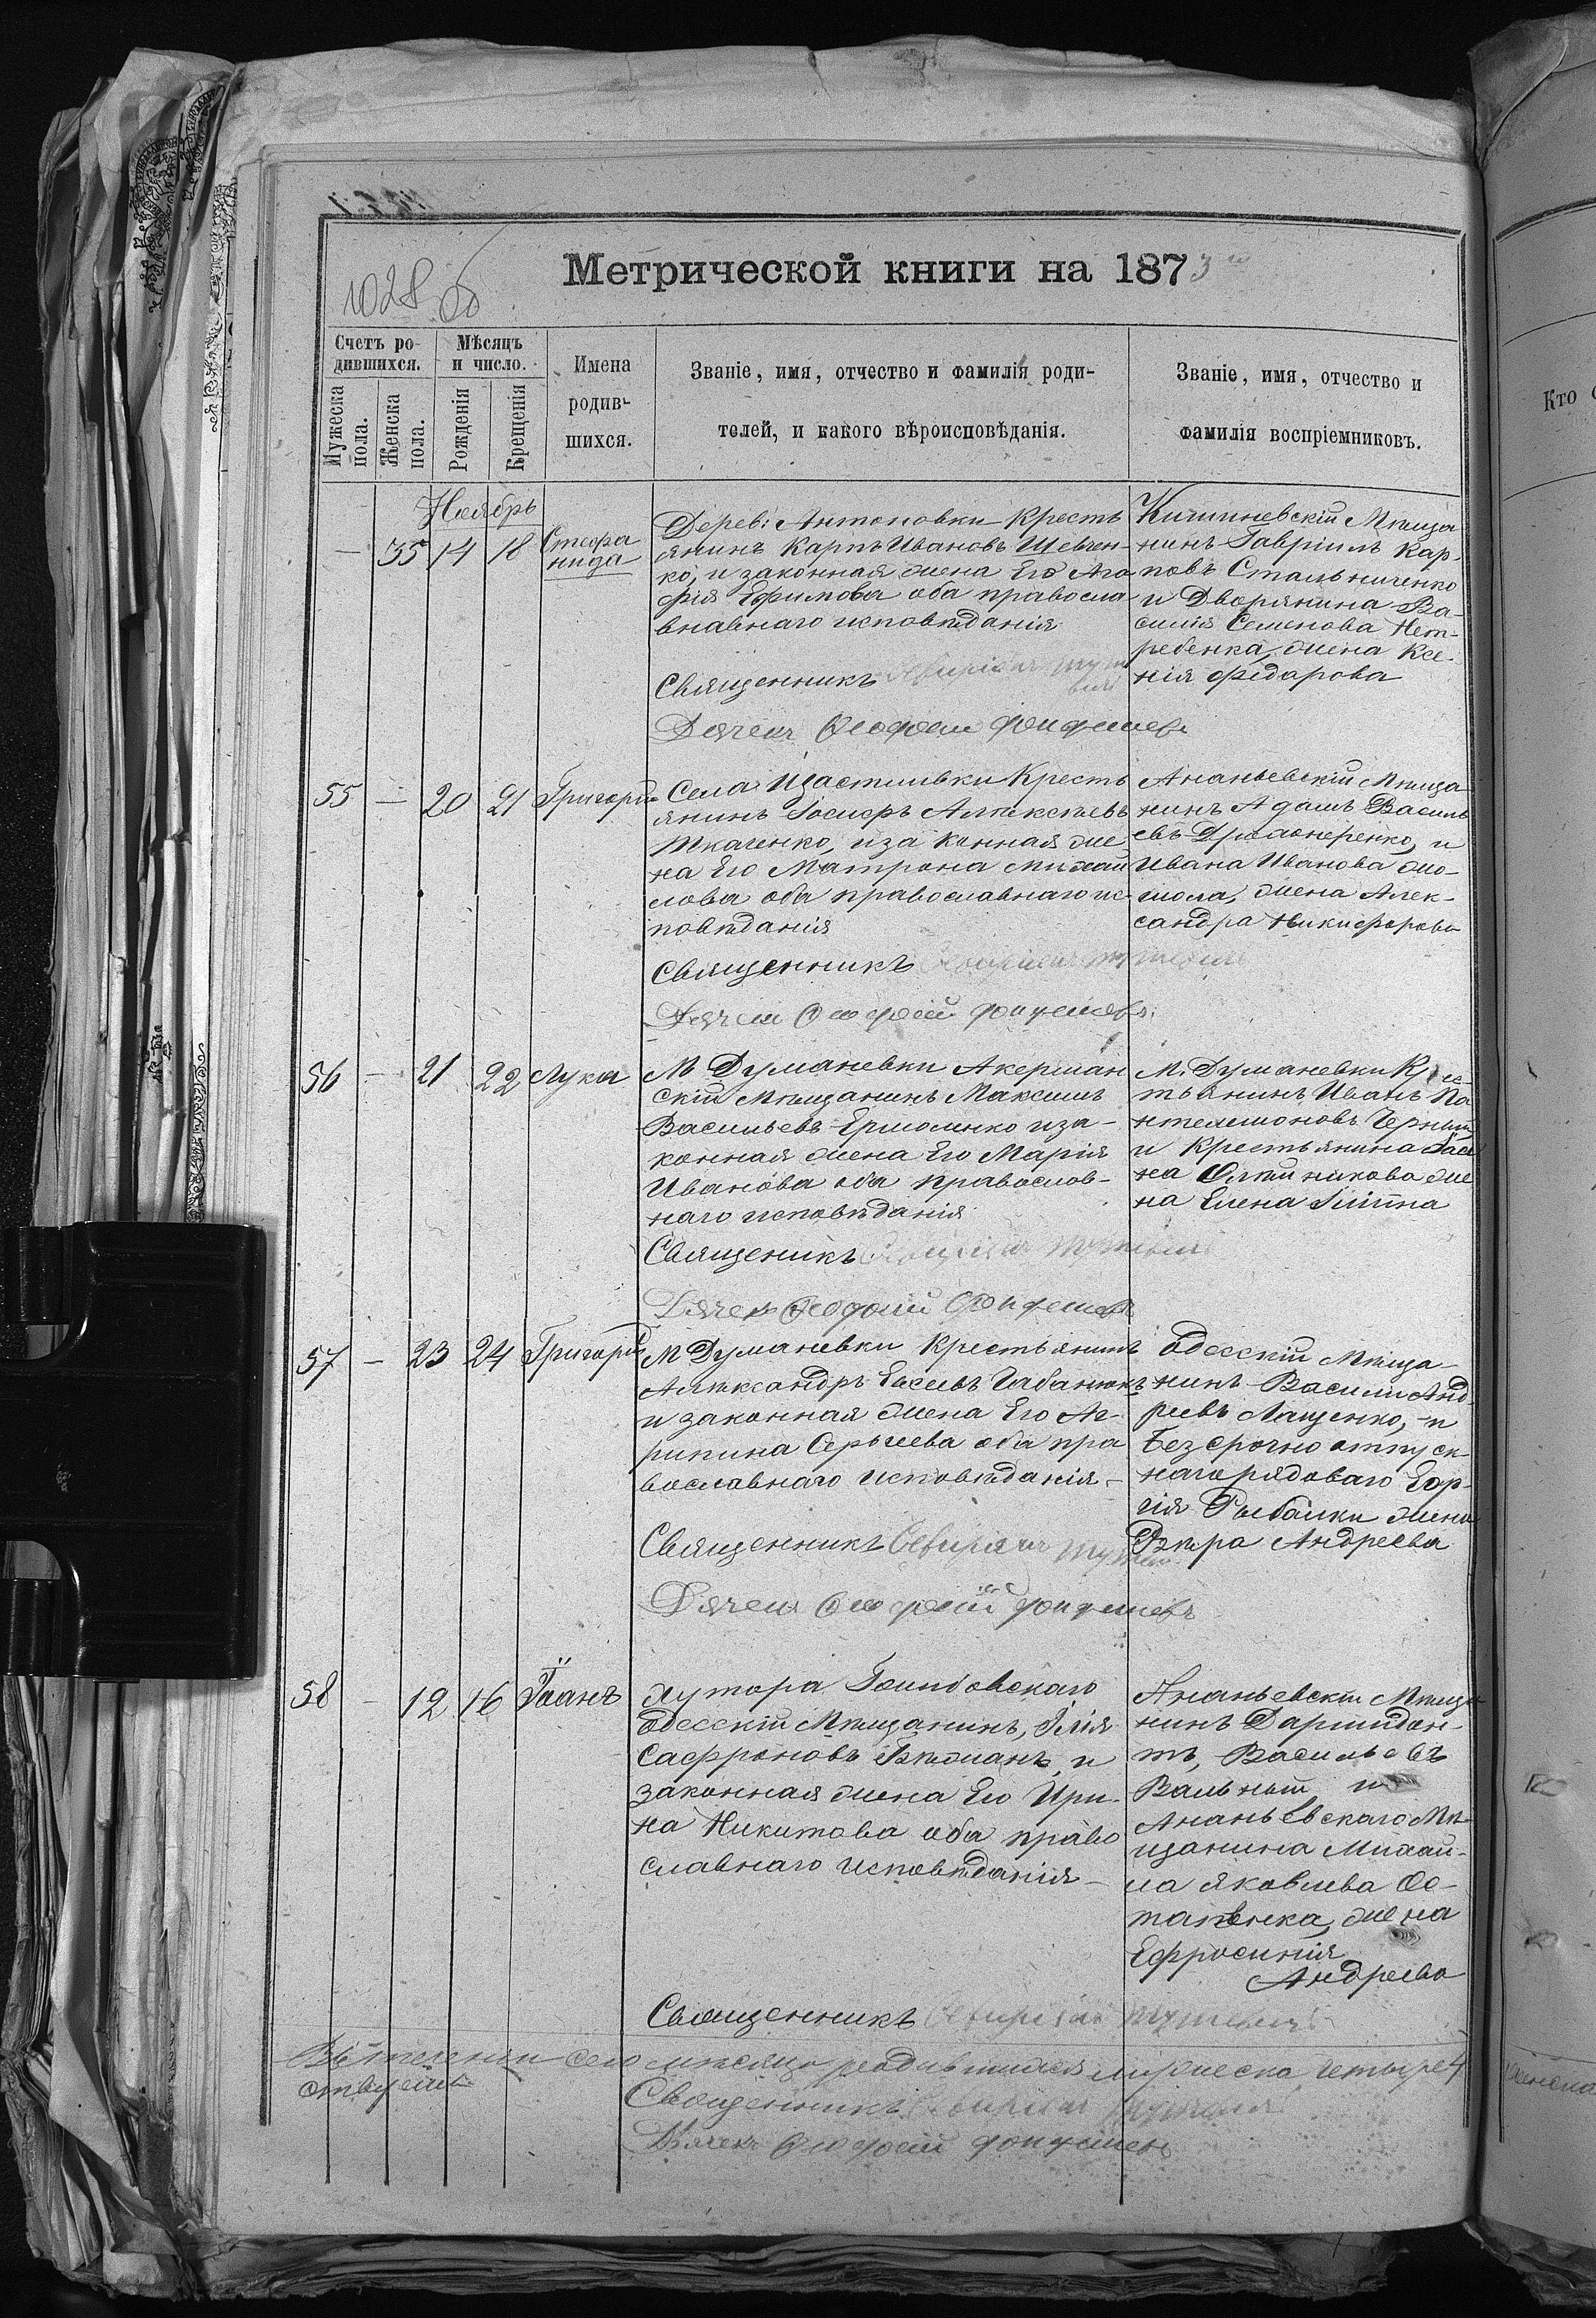 1028 об
Метрической книги на 1873 го
Счетъ ро-
дившихся.
Мужеска пола.
Женска пола.
Мѣсяцъ
и число.
Рожденія
Крещенія
Имена
родив-
шихся.
Званіе, имя, отчество и фамилія роди-
телей, и какого вѣроисповѣданія.
Званіе, имя, отчество и
фамилія воспріемниковъ.
Кто
Ноябрь
— 35 14 18
Стефа
нида
Дерев: Антоновки Кресть
янинъ Карпъ Ивановъ Шевчен-
ко, и законная жена Его Ага
фія Ефимова оба правосла
внавнаго исповѣданія
Священникъ
Дячекъ
Кишиневскій Мѣща
нинъ Гавріилъ Кар-
повъ Стальниченко
и Дворянина Ва-
силія Семенова Нет-
ребенка, жена Ксе-
нія Федарова
55 — 20 21 Григорій
Села Щастливки Кресть
янинъ Іосифъ Алѣксѣевъ
Ткаченко, иза конная же
на Его Матрона Михай
лова оба православнаго ис-
повѣданія
Священникъ
Дячекъ
Ананьевскій Мѣща
нинъ Адамъ Василь
евъ и
Ивана Иванова
жена Алек-
сандра Никифорова
56 — 21 22 Лука
М Думаневки Акерман
скій Мѣщанинъ Максимъ
Васильевъ Ермоленко иза-
конная жена Его Марія
Иванова оба православ-
наго исповѣданія
Священикъ
Дячекъ
М. Думаневки Крес-
тьянинъ Иванъ Па
нтелемоновъ Черный
и Крестьянина
на Олѣйникова же
на Елена
57 — 23 24 Григорій
М Думаневки Крестьянинъ
Алѣксандръ Чабанюкъ
и законная жена Его Аг-
рипина Сергѣева оба пра
вославнаго исповѣданія —
Священникъ
Дячекъ
Одесскій Мѣща-
нинъ Василій Анд-
реевъ Лащенко, и
Безсрочно отпуск-
наго рядоваго Геор-
гія Рыбалки жена
Вѣра Андреева
58 — 12 16 Іоанъ
Хутора
Одесскій Мѣщанинъ, Илія
Сафроновъ и
законная жена Его Ири-
на Никитова оба право
славнаго исповѣданія —
Ананьевскій Мѣща
нинъ
Васильевъ
Вальный и
Ананьевскаго Мѣ-
щанина Михай-
ла Яковлева Ос-
тапенка, жена
Ефросинія
Андреева
Священникъ
Въ теченіи сего мѣсяца родившихся мужеска четыре 4
Священникъ
Дячекъ